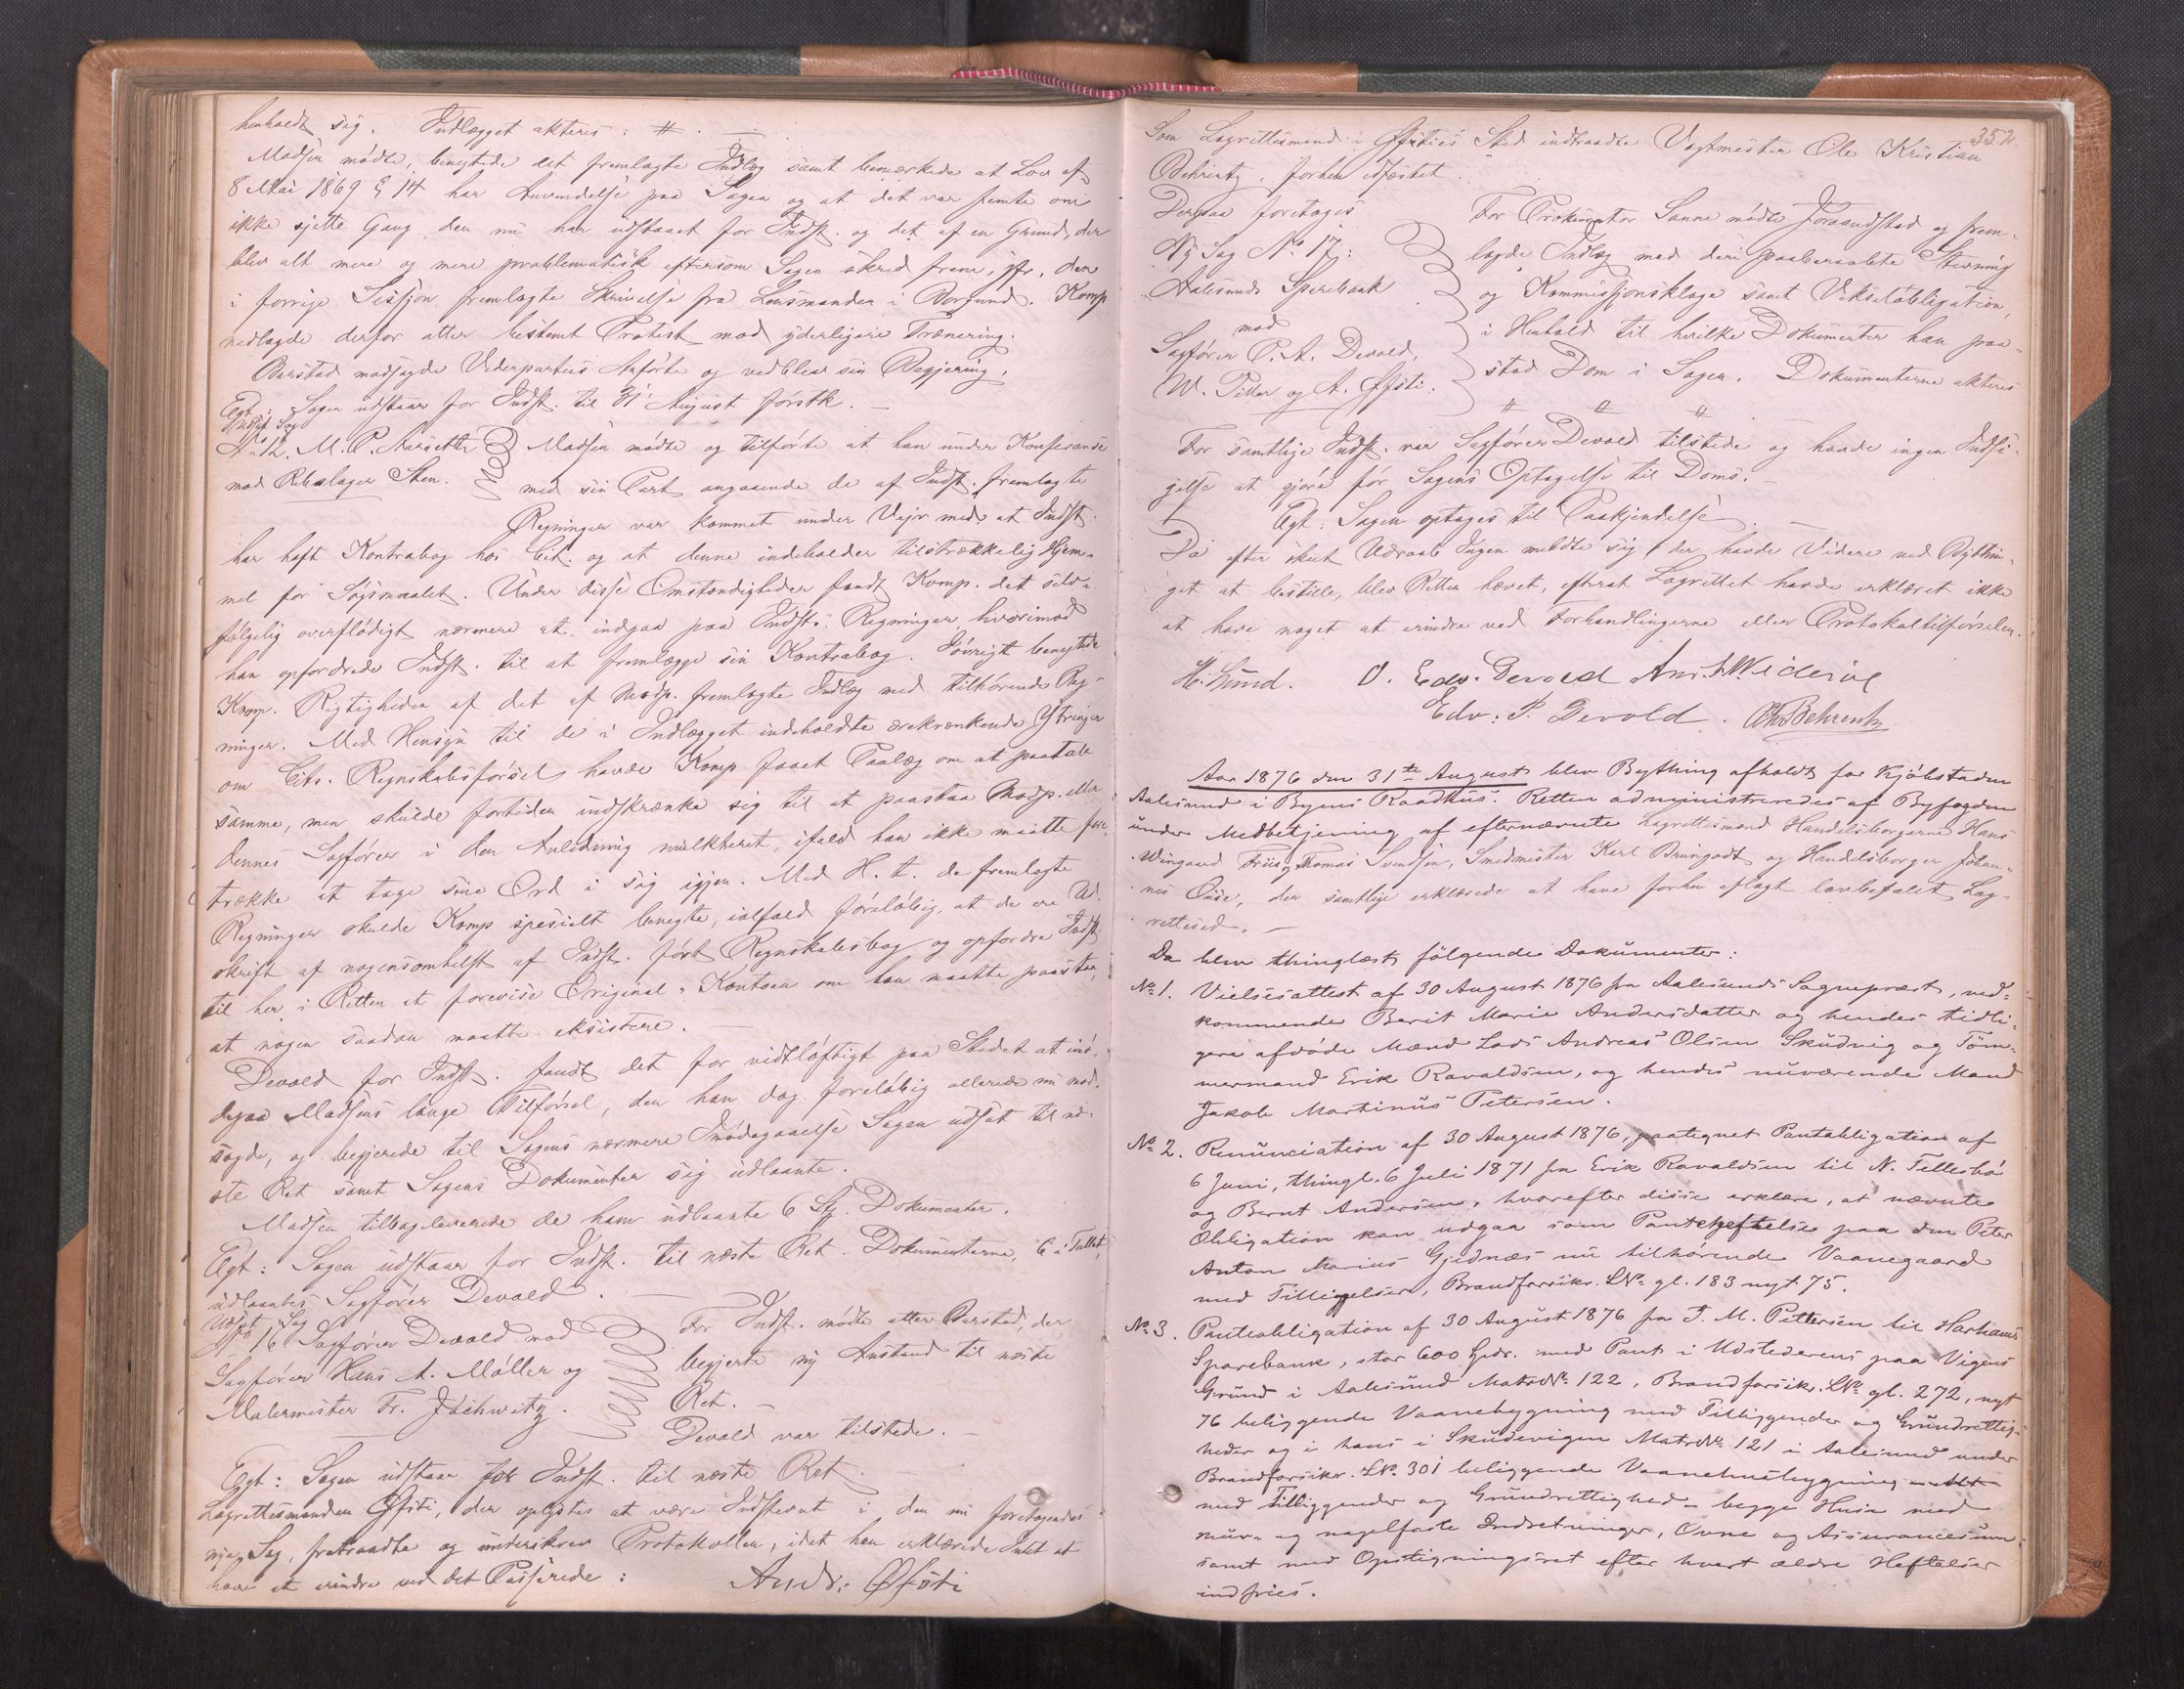 henholdt sig. Indlægget akteres: #.
Madsen mødte, benegtede det fremlagte Indlæg samt bemærkede at Lov af
8 Mai 1869 § 14 har Anvendelse paa Sagen og at det var femte om
ikke sjette Gang, den nu har udstaaet for Indst. og det af en Grund, der
blev alt mere og mere problematisk eftersom Sagen skred frem, jfr. den
i forrige Sessjon fremlagte Skrivelse fra Lensmanden i Borgund. Komp
nedlagde derfor atter bestemt Protest mod yderligere Trænering.
Barstad modsagde Vederpartens Anførte og vedblev sin Begjering.
Egt: Sagen udstaar for Indst. til 31 August førstk.
Udsat Sag
No 12. M. P. Aarsæther Madsen mødte og tilførte at han under Konferanse
mod Rebslager Sten. med sin Part angaaende de af Indst. fremlagte
Regninger var kommet under Vejr med, at Indst.
har haft Kontrabog hos Cit. og at denne indeholder tilstrækkelig Hjem-
mel for Søgsmaalet. Under disse Omstændigheder fandt Komp. det selv-
følgelig overflødigt nærmere at indgaa paa Indsts. Regninger, hvorimod
han opfordrede Indst. til at fremlægge sin Kontrabog. Iøvrigt benegtede
Komp. Rigtigheden af det af Modp. fremlagte Indlæg med tilhørende Reg-
ninger. Med Hensyn til de i Indlægget indeholdte ærekrænkende Ytringer
om Cits. Regnskabsførsel havde Komp faaet Paalæg om at paatale
samme, men skulde fortiden indskrænke sig til at paastaa Modp. eller
dennes Sagfører i den Anledning mulkteret, ifald han ikke maatte fore-
trække at tage sine Ord i sig igjen. Med H. t. de fremlagte
Regninger skulde Komp spesielt benegte, ialfald foreløbig, at de ere Ud-
skrift af nogensomhelst af Indst. ført Regnskabsbog og opfordre Indst.
til her i Retten at forevise Original-Kontoen om han maatte paastaa,
at nogen saadan maatte eksistere.
Devold for Indst. fandt det for vidtløftigt paa Stedet at imø-
degaa Madsens lange Tilførsel, den han dog foreløbig allerede nu mod-
sagde, og begjerede til Sagens nærmere Imødegaaelse Sagen udsat til næ-
ste Ret samt Sagens Dokumenter sig udlaante.
Madsen tilbageleverede de ham udlaante 6 St. Dokumenter.
Egt: Sagen udstaar for Indst. til næste Ret. Dokumenterne, 6 i Tallet,
udlaantes Sagfører Devold.
Udsat Sag
No 16 Sagfører Devold mod For Indst. mødte atter Barstad, der
Sagfører Hans A. Møller og begjerte ny Anstand til næste
Malermester Fr. Jöchwitz. Ret.
Devold var tilstede.
Egt: Sagen udstaar for Indst. til næste Ret.
Lagrettesmanden Øfsti, der oplystes at være Indstevnt i den nu foretagendes
nye Sag, fratraadte og underskrev Protokollen, idet han erklærede Intet at
have at erindre ved det Passerede: Andr. Øfsti
352.
Som Lagrettesmand i Øfsties Sted indtraadte Vagtmester Ole Kristian
Behrentz, forhen edfæstet.
Derpaa foretoges For Prokurator Sanne mødte Joraandstad og frem-
Ny Sag No 17: lagde Indlæg med deri paaberaabte Stevning
Aalesunds Sparebank og Kommissjonsklage samt Vekselobligation,
mod i Henhold til hvilke Dokumenter han paa-
Sagfører P. A. Devold, stod Dom i Sagen. Dokumenterne akteres
W. Piller og A. Øfsti. # # #
For samtlige Indst. var Sagfører Devold tilstede og havde ingen Indsi-
gelse at gjøre for Sagens Optagelse til Doms.
Egt: Sagen optages til Paakjendelse.
Da efter skeet Udraab Ingen meldte sig, der havde Videre ved Bythin-
get at bestille, blev Retten hævet, efterat Lagrettet havde erklæret ikke
at have noget at erindre ved Forhandlingerne eller Protokoltilførselen.
H. Lund. O. Edv. Devold And. Widerøe
Edv: P. Devold. O Chr Behrentz
Aar 1876 den 31te August blev Bything afholdt for Kjøbstaden
Aalesund i Byens Raadhus. Retten administreredes af Byfogden
under Medbetjening af efternævnte Lagrettesmænd Handelsborgerne Hans
Wingaard Friis, Thomas Svendsen, Smedmester Karl Brungodt og Handelsborger Johan-
nes Ouse, der samtlige erklærede at have forhen aflagt lovbefalet Lag-
rettesed.
Da blev thinglæst følgende Dokumenter:
No 1. Vielsesattest af 30 August 1876 fra Aalesunds Sogneprest, ved-
kommende Berit Marie Andersdatter og hendes tidli-
gere afdøde Mænd Lars Andreas Olsen Skudvig og Töm-
mermand Erik Ravaldsen, og hendes nuværende Mand
Jakob Martinus Petersen.
No 2. Renunciation af 30 August 1876, paategnet Pantobligation af
6 Juni, thingl. 6 Juli 1871 fra Erik Ravaldsen til N. Tellesbö
og Bernt Andersen, hvorefter disse erklære, at nævnte
Obligation kan udgaa som Panteheftelse paa den Peter
Anton Marius Gjednæs nu tilhørende Vaanegaard
med Tilliggelser, Brandforsikr. LNo gl. 183 nyt 75.
No 3. Panteobligation af 30 August 1876 fra T. M. Pettersen til Harhams
Sparebank, stor 600 Spdr. med Pant i Udstederens paa Vigens
Grund i Aalesund MatrNo 122, Brandforsikr. LNo gl. 272, nyt
76 beliggende Vaanebygning med Tilliggender og Grundrettig-
heder og i hans i Skudevigen MatrNo 121 i Aalesund under
Brandforsikr. LNo. 301 beliggende Vaanehusbygning
med Tilliggender og Grundrettighed – begge Huse med
mur- og nagelfaste Indretninger, Ovne og Assurancesum
samt med Opstigningsret efter hvert ældre Heftelser
indfries.